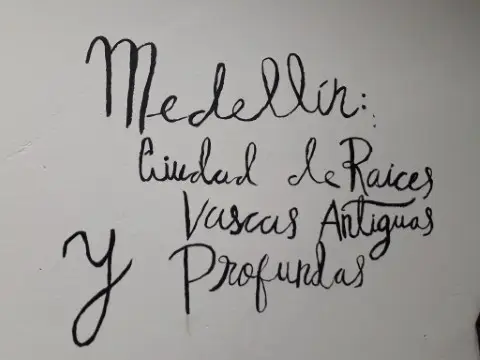 Medellín:
Ciudad de Raíces
Vascas Antiguas
Y Profundas